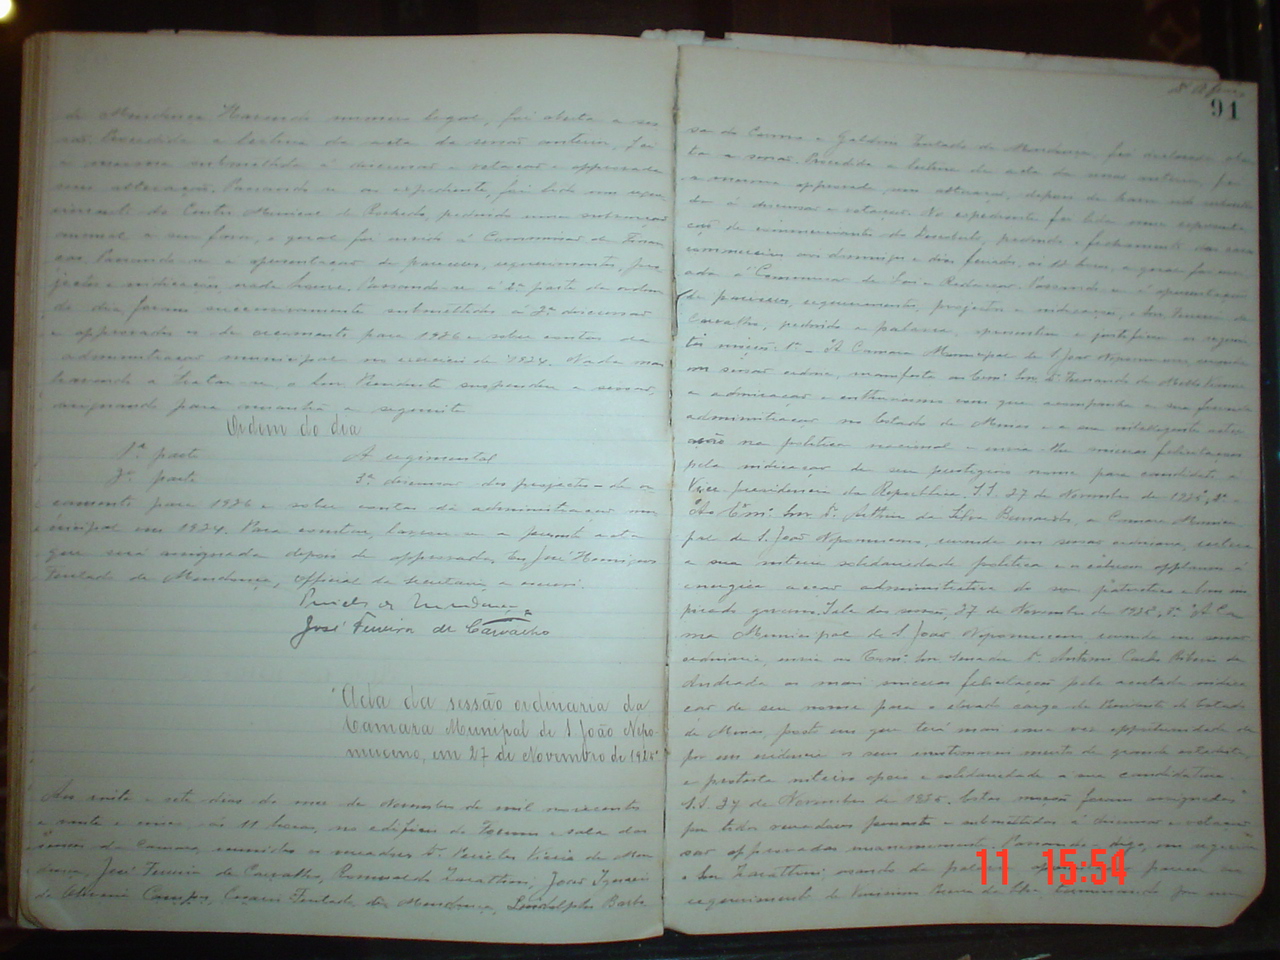 de Mendonça Havendo numero legal, foi aberta a ses
são. Procedida a leitura da acta da sessão anterior, foi
a mesma submettida á discussão e votação e approvada
sem alteração. Passando-se ao expediente, foi lido um reque
rimento do Centro Musical de Rochedo, pedindo uma subvenção
annual a seu favor, o qual foi á Commissão de Finan
ças. Passando-se a apresentação de pareceres, requerimentos, pro
jectos e indicações, nada houve. Passando-se á 2ª parte da ordem
do dia, foram successivamente submettidos á 2ª discussão
e approvados o de orçamento para 1926 e sobre contas da
administração municipal no exercicio de 1924. Nada mais
havendo a tratar-se, o Snr. Presidente suspendeu a sessão,
designando para amanhã a seguinte
Ordem do dia
1ª parte A regimental
2ª parte 3ª discussão dos projectos de or
çamento para 1926 e sobre contas da administração mu
nicipal em 1924. Para constar, lavrou-se a presente acta
que será assignada depois de approvada. Eu, José Henriques
Furtado de Mendonça, official da secretaria, a escrevi.
Pericles de Mendonça
José Ferreira de Carvalho
Acta da sessão ordinaria da
Camara Munipal de S João Nepo-
muceno, em 27 de Novembro de 1925
Aos vinte e sete dias do mes de Novembro de mil novecentos
e vinte e cinco, ás 11 horas, no edificio do Forum e sala das
sessões da Camara, reunidos os vereadores Dr. Pericles Vieira de Men
donça, José Ferreira de Carvalho, Romualdo Zarattini, João Ignacio
de Campos, Furtado de Mendonça, Lindolpho Barbo
91
sa do Carmo e Galdino Furtado de Mendonça, foi declarada aber
ta a sessão. Procedida a leitura da acta da sessão anterior, foi
a mesma approvada sem alteração, depois de haver sido submetti
da á discussão e votação. No expediente foi lida uma
de commerciantes do Descoberto, pedindo o fechamento das casas
commerciaes aos domingos e dias feriados, ás 12 horas, a qual foi
á Commissão de Leis e Redacção. Passando-se á apresentação
de pareceres, requerimentos, projectos e indicações, o Snr. Ferreira de
Carvalho, pedindo a palavra, apresentou e justificou as seguin
tes moções: 1ª - "A Camara Municipal de S João Nepomuceno reunida
em sessão ordinaria, manifesta ao Exmº Snr Dr Fernando de Mello Vianna
a admiração e enthusiasmo com que acompanha a sua fecunda
administração no Estado de Minas e a sua intelligente
na politica nacional e envia-lhe sinceras felicitações
pela indicação de seu prestigioso nome para candidato a
Vice presidencia da Republica. S.S. 27 de Novembro de 1925. 2ª -
"Ao Exmº Snr Dr. Arthur da Silva Bernardes, a Camara Munici
pal de S. João Nepomuceno, reunida em sessão ordinaria,
a sua inteira solidariedade politica e applauso á
energica acção administrativa do seu patriotico e bem ins
pirado governo. Sala das sessões, 27 de Novembro de 1925. 3ª "A Ca
mara Municipal de S João Nepomuceno, reunida em sessão
ordinaria, envia ao Exmº Snr Senador Dr. Antonio Carlos Ribeiro de
Andrada as mais sinceras felicitações pela acertada indica
ção de seu nome para o elevado cargo de Presidente do Estado
de Minas, posto em que terá mais uma vez opportunidade de
por em evidencia os seus meritos de grande estadista,
e protesta inteiro apoio e solidariedade a sua candidatura
S.S. 27 de Novembro de 1925. Estas moções foram assignadas
por todos vereadores presentes e submettidas á discussão e votação
são approvadas unanimemente. em seguida
o Snr Zarattini, usando da palavra,
requerimento de
11 15:54